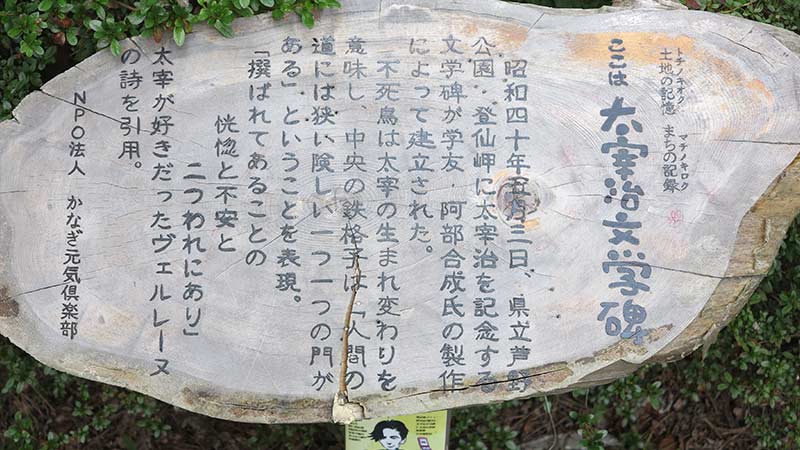 トチノキオク マチノキロク
土地の記憶 まちの記録
ここは 太宰治文学碑
昭和四十年五月三日、県立芦野
公園・登仙岬に太宰治を記念する
文学碑が学友・阿部合成氏の製作
によって建立された。
不死鳥は太宰の生まれ変わりを
意味し、中央の鉄格子は「人間の
道には狭い険しい一つ一つの門が
ある」、ということを表現。
「撰ばれてあることの
恍惚と不安と
二つわれにあり」
太宰が好きだったヴェルレーヌ
の詩を引用。
NPO法人 かなぎ元気倶楽部